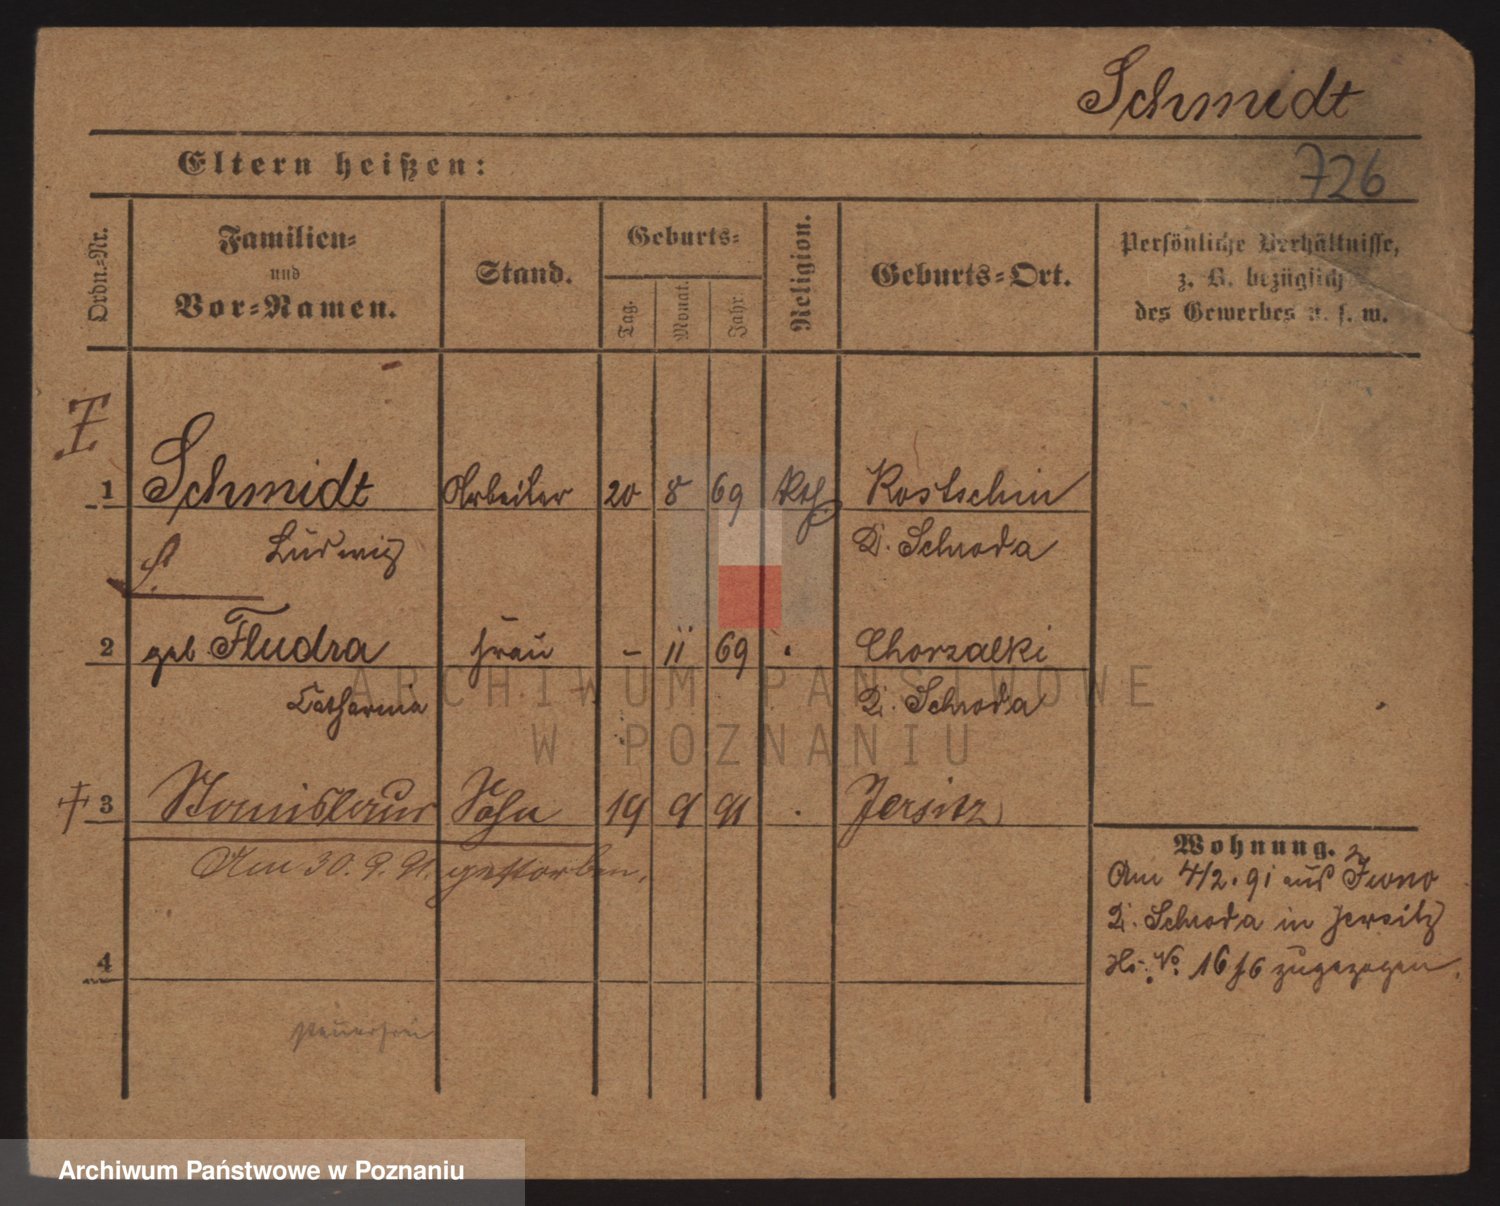 Schmidt
Eltern heißen:
726
Ordn.-Nr.
Familien- und Vor-Namen.
Stand.
Geburts-
Tag.
Monat.
Jahr.
Religion.
Geburts-Ort.
Persönliche Verhältnisse,
z. B. bezüglich
des Gewerbes u. s. w.
1 Schmidt Arbeiter 20 8 69 Kth. Kostschin
Ludwig K. Schroda
2 geb. Fludra Frau - 11 69 Chorzalki
Catharina K. Schroda
3 Stanislaus Sohn 19 9 91 Jersitz
Am 30. 9. 91. gestorben.
4
steuerfrei
Wohnung.
Am 4/2. 91 aus Iwno
K. Schroda in Jersitz
No. 16 zugezogen.
ARCHIWUM PAŃSTWOWE
W POZNANIU
Archiwum Państwowe w Poznaniu